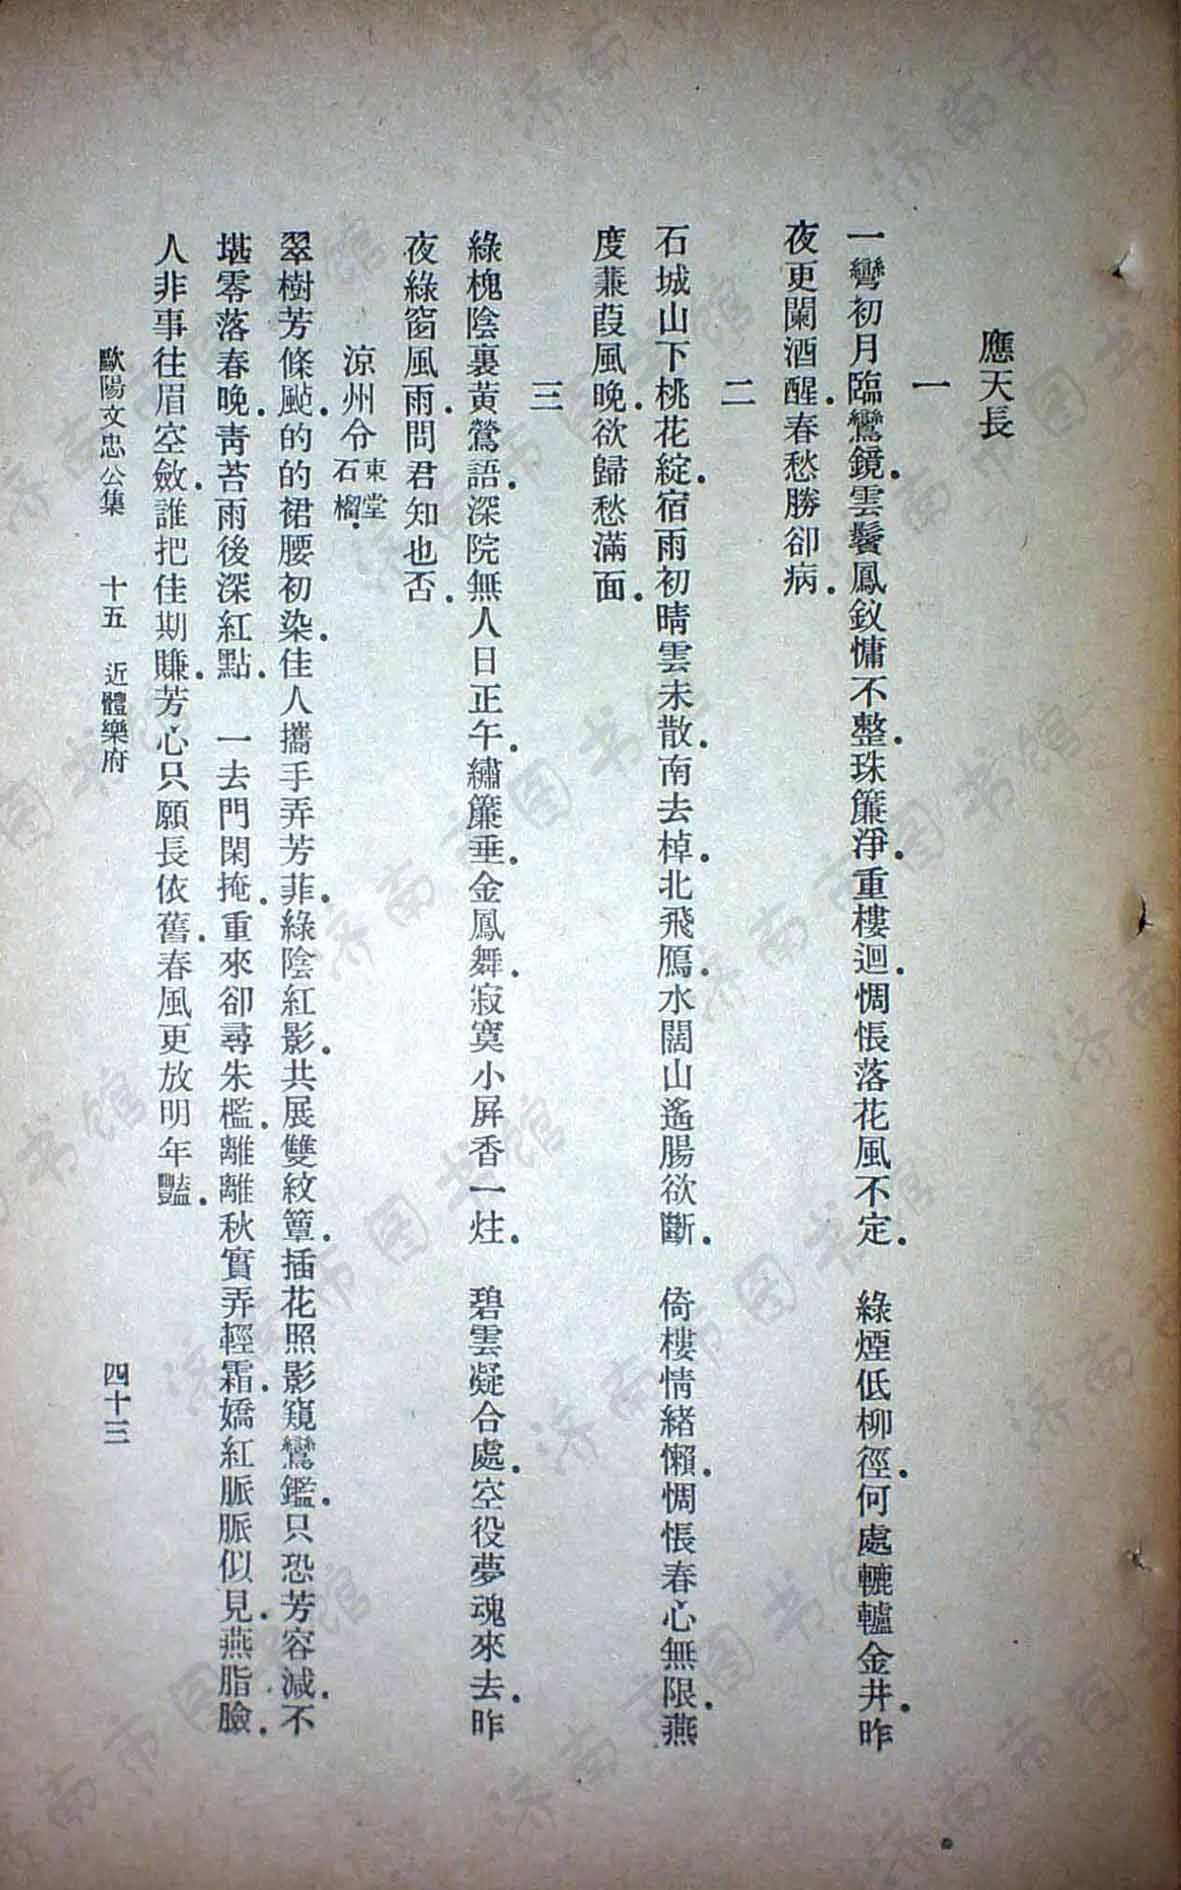 應天長
一
一彎初月臨鸞鏡．雲鬢鳳釵慵不整．珠簾淨．重樓迥．惆悵落花風不定．　綠煙低柳徑．何處轆轤金井．昨
夜更闌酒醒．春愁勝卻病．
二
石城山下桃花綻．宿雨初晴雲未散．南去棹．北飛鴈．水闊山遙腸欲斷．　倚樓情緒懶．惆悵春心無限．燕
度蒹葭風晚．欲歸愁滿面．
三
綠槐陰裏黃鶯語．深院無人日正午．繡簾垂．金鳳舞．寂寞小屏香一炷．　碧雲凝合處．空役夢魂來去．昨
夜綠窗風雨．問君知也否．
涼州令 東堂石榴．
翠樹芳條颭．的的裙腰初染．佳人攜手弄芳菲．綠陰紅影．共展雙紋簟．插花照影窺鸞鑑．只恐芳容減．不
堪零落春晚．青苔雨後深紅點．　一去門閑掩．重來卻尋朱檻．離離秋實弄輕霜．嬌紅脈脈似見．燕脂臉．
人非事往眉空斂．誰把佳期賺．芳心只願長依舊．春風更放明年豔．
歐陽文忠公集　十五　近體樂府　四十三
济南市图书馆